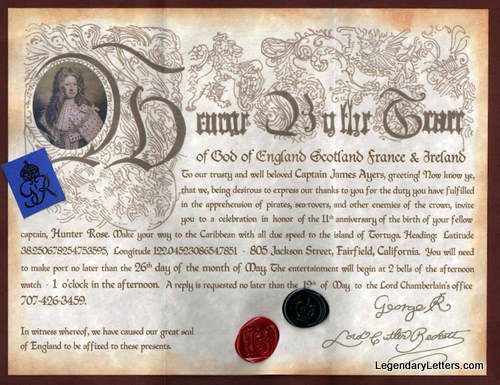 George By the Grace
of God of England Scotland France & Ireland
To our trusty and well beloved Captain James Ayers, greeting! Now know ye,
that we, being desirous to express our thanks to you for the duty you have fulfilled
in the apprehension of pirates, sea-rovers, and other enemies of the crown, invite
you to a celebration in honor of the 11th anniversary of the birth of your fellow
captain, Hunter Rose. Make your way to the Caribbean with all due speed to the island of Tortuga. Heading: Latitude
38.250678254753595, Longitude 122.04523086547851 - 805 Jackson Street, Fairfield, California. You will need
to make port no later than the 26th day of the month of May. The entertainment will begin at 2 bells of the afternoon
watch - 1 o'clock in the afternoon. A reply is requested no later than the 19th of May to the Lord Chamberlain's office
707-426-3459.
George R
In witness whereof, we have caused our great seal
of England to be affixed to these presents.
Lord Cutler Beckett
GR
LegendaryLetters.com